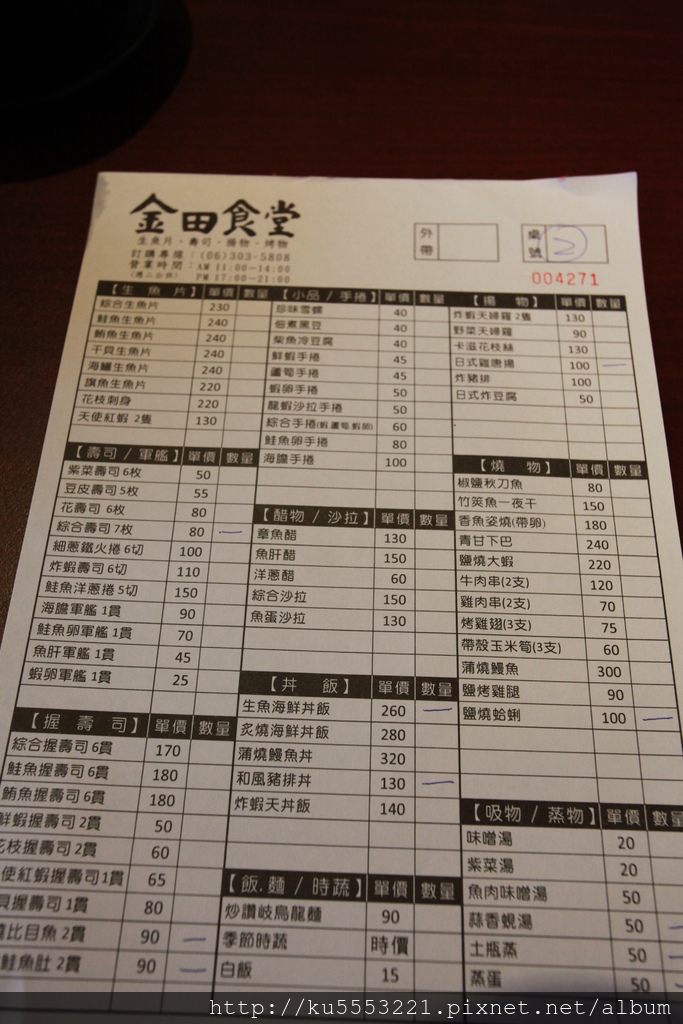 金田食堂
生魚片、壽司、揚物、烤物
訂購專線：(06)303-5808
營業時間：AM 11:00~14:00
(週二公休) PM 17:00~21:00
外帶
桌號 2
004271
【生魚片】 單價 數量
綜合生魚片 230
鮭魚生魚片 240
鮪魚生魚片 240
干貝生魚片 240
海鱺生魚片 240
旗魚生魚片 220
花枝刺身 220
天使紅蝦 2隻 130
【壽司/軍艦】 單價 數量
紫菜壽司 6枚 50
豆皮壽司 5枚 55
花壽司 6枚 80
綜合壽司 7枚 80 —
細蔥鐵火捲 6切 100
炸蝦壽司 6切 110
鮭魚洋蔥捲 5切 150
海膽軍艦 1貫 90
鮭魚卵軍艦 1貫 70
魚肝軍艦 1貫 45
蝦卵軍艦 1貫 25
【握壽司】 單價 數量
綜合握壽司 6貫 170
鮭魚握壽司 6貫 180
鮪魚握壽司 6貫 180
鮮蝦握壽司 2貫 50
花枝握壽司 2貫 60
使紅蝦握壽司 1貫 65
貝握壽司 1貫 80
比目魚 2貫 90 —
鮭魚肚 2貫 90 —
【小品/手捲】 單價 數量
珍味雪螺 40
佃煮黑豆 40
柴魚冷豆腐 40
鮮蝦手捲 45
蘆筍手捲 45
蝦卵手捲 50
龍蝦沙拉手捲 50
綜合手捲(蝦蘆筍蝦卵) 60
鮭魚卵手捲 80
海膽手捲 100
【醋物/沙拉】 單價 數量
章魚醋 130
魚肝醋 150
洋蔥醋 60
綜合沙拉 150
魚蛋沙拉 130
【丼飯】 單價 數量
生魚海鮮丼飯 260 —
炙燒海鮮丼飯 280
蒲燒鰻魚丼 320
和風豬排丼 130 —
炸蝦天丼飯 140
【飯.麵/時蔬】 單價 數量
炒讚岐烏龍麵 90
季節時蔬 時價
白飯 15
【揚物】 單價 數量
炸蝦天婦羅 2隻 130
野菜天婦羅 90
卡滋花枝絲 130
日式雞唐揚 100 —
炸豬排 100
日式炸豆腐 50
【燒物】 單價 數量
椒鹽秋刀魚 80
竹筴魚一夜干 150
香魚姿燒(帶卵) 180
青甘下巴 240
鹽燒大蝦 220
牛肉串(2支) 120
雞肉串(2支) 70
烤雞翅(3支) 75
帶殼玉米筍(3支) 60
蒲燒鰻魚 300
鹽烤雞腿 90
鹽燒蛤蜊 100 —
【吸物/蒸物】 單價 數量
味噌湯 20
紫菜湯 20
魚肉味噌湯 50
蒜香蜆湯 50 —
土瓶蒸 50 —
蒸蛋 50 —
http://ku5553221.pixnet.net/album